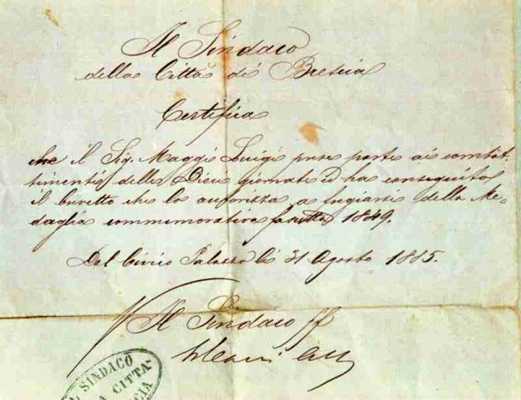 Il Sindaco
della Città di Brescia
Certifica
che il Sig. Maggi Luigi prese parte ai combat-
timenti delle Dieci giornate e ha conseguito
il brevetto che lo autorizza a fregiarsi della Me-
daglia commemorativa 1849.
Dal Civico Palazzo li 31 Agosto 1885.
Il Sindaco ff
IL SINDACO
CITTÀ